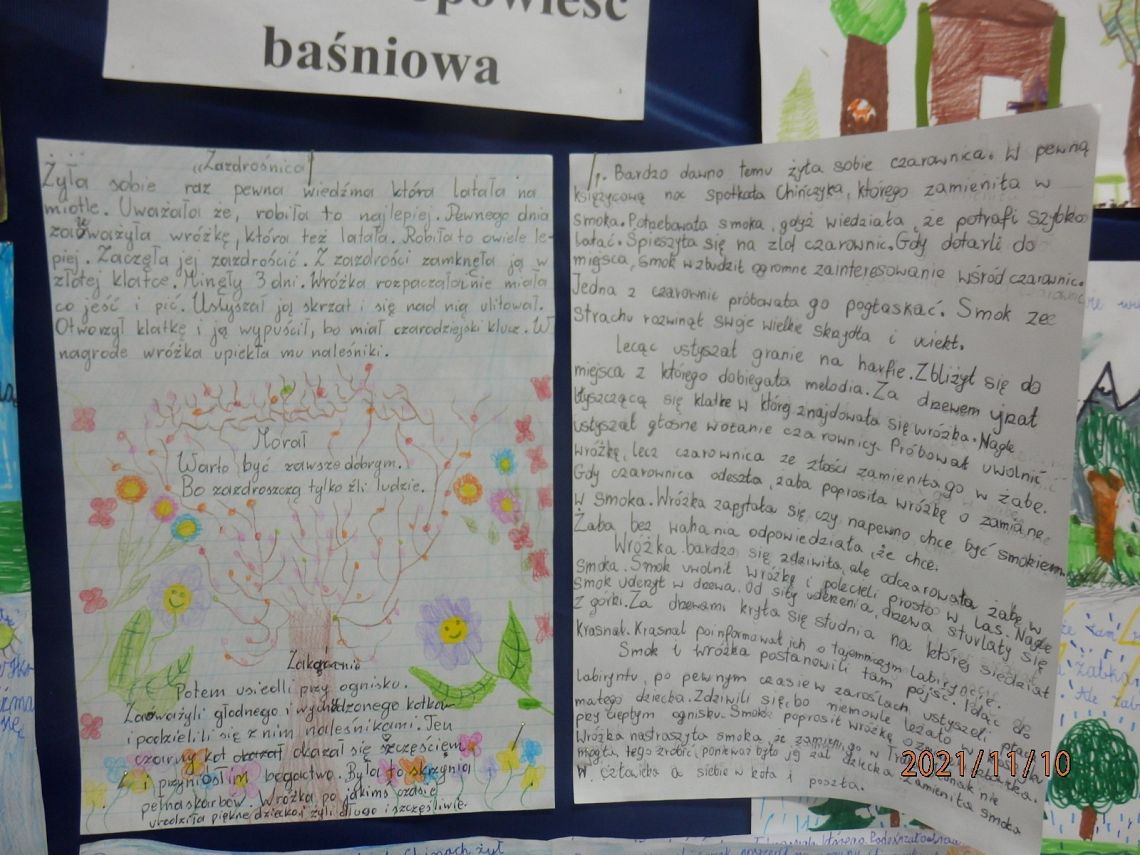 opowieść
baśniowa
„Zazdrośnica"
Żyła sobie raz pewna wiedźma która latała na
miotle. Uważała że, robiła to najlepiej. Pewnego dnia
zauważyła wróżkę, która też latała. Robiła to owiele le-
piej. Zaczęła jej zazdrościć. Z zazdrości zamknęła ją w
złotej klatce. Minęły 3 dni. Wróżka rozpaczała, nie miała
co jeść i pić. Usłyszał ją skrzat i się nad nią ulitował.
Otworzył klatkę i ją wypuścił, bo miał czarodziejski klucz. W
nagrode wróżka upiekła mu naleśniki.
Morał
Warto być zawsze dobrym.
Bo zazdroszczą tylko źli ludzie.
Zakończenie
Potem usiedli przy ognisku.
Zauważyli głodnego i wychudzonego kotka
i podzielili się z nim naleśnikami. Ten
czarny kot okazał okazał się szczęściem
i przyniósł im bogactwo. Była to skrzynia
pełna skarbów. Wróżka po jakimś czasie
urodziła piękne dziecko i żyli długo i szczęśliwie.
1. Bardzo dawno temu żyła sobie czarownica. W pewną
księżycową noc spotkała Chińczyka, którego zamieniła w
smoka. Potrzebowała smoka, gdyż wiedziała, że potrafi szybko
latać. Śpieszyła się na zlot czarownic. Gdy dotarli do
miejsca, smok wzbudził ogromne zainteresowanie wśród czarownic.
Jedna z czarownic próbowała go pogłaskać. Smok ze
strachu rozwinął swoje wielkie skrzydła i uciekł.
Lecąc usłyszał granie na harfie. Zbliżył się do
miejsca z którego dobiegała melodia. Za drzewem ujrzał
błyszczącą się klatkę w której znajdowała się wróżka. Nagle
usłyszał głośne wołanie czarownicy. Próbował uwolnić
wróżkę, lecz czarownica ze złości zamieniła go w żabę.
Gdy czarownica odeszła, żaba poprosiła wróżkę o zamianę
w smoka. Wróżka zapytała się czy napewno chce być smokiem
Żaba bez wahania odpowiedziała, że chce.
Wróżka bardzo się zdziwiła, ale odczarowała żabę w
smoka. Smok uwolnił wróżkę i polecieli prosto w las. Nagle
smok uderzył w drzewa. Od siły uderzenia, drzewa sturlały się
z górki. Za drzewami kryła się studnia na której siedział
krasnal. Krasnal poinformował ich o tajemniczym labiryncie.
Smok i wróżka postanowili tam pójść. Idąc do
labiryntu, po pewnym czasie w zaroślach, usłyszeli płacz
małego dziecka. Zdziwili się, bo niemowle leżało w
przy ciepłym ognisku. Smok poprosił wróżkę
Wróżka nastraszyła smoka, że zamieni go w
mogła tego zrobić, ponieważ było jej żal dziecka. Zamieniła smoka
w człowieka a siebie w kota i
poszła.
2021/11/10